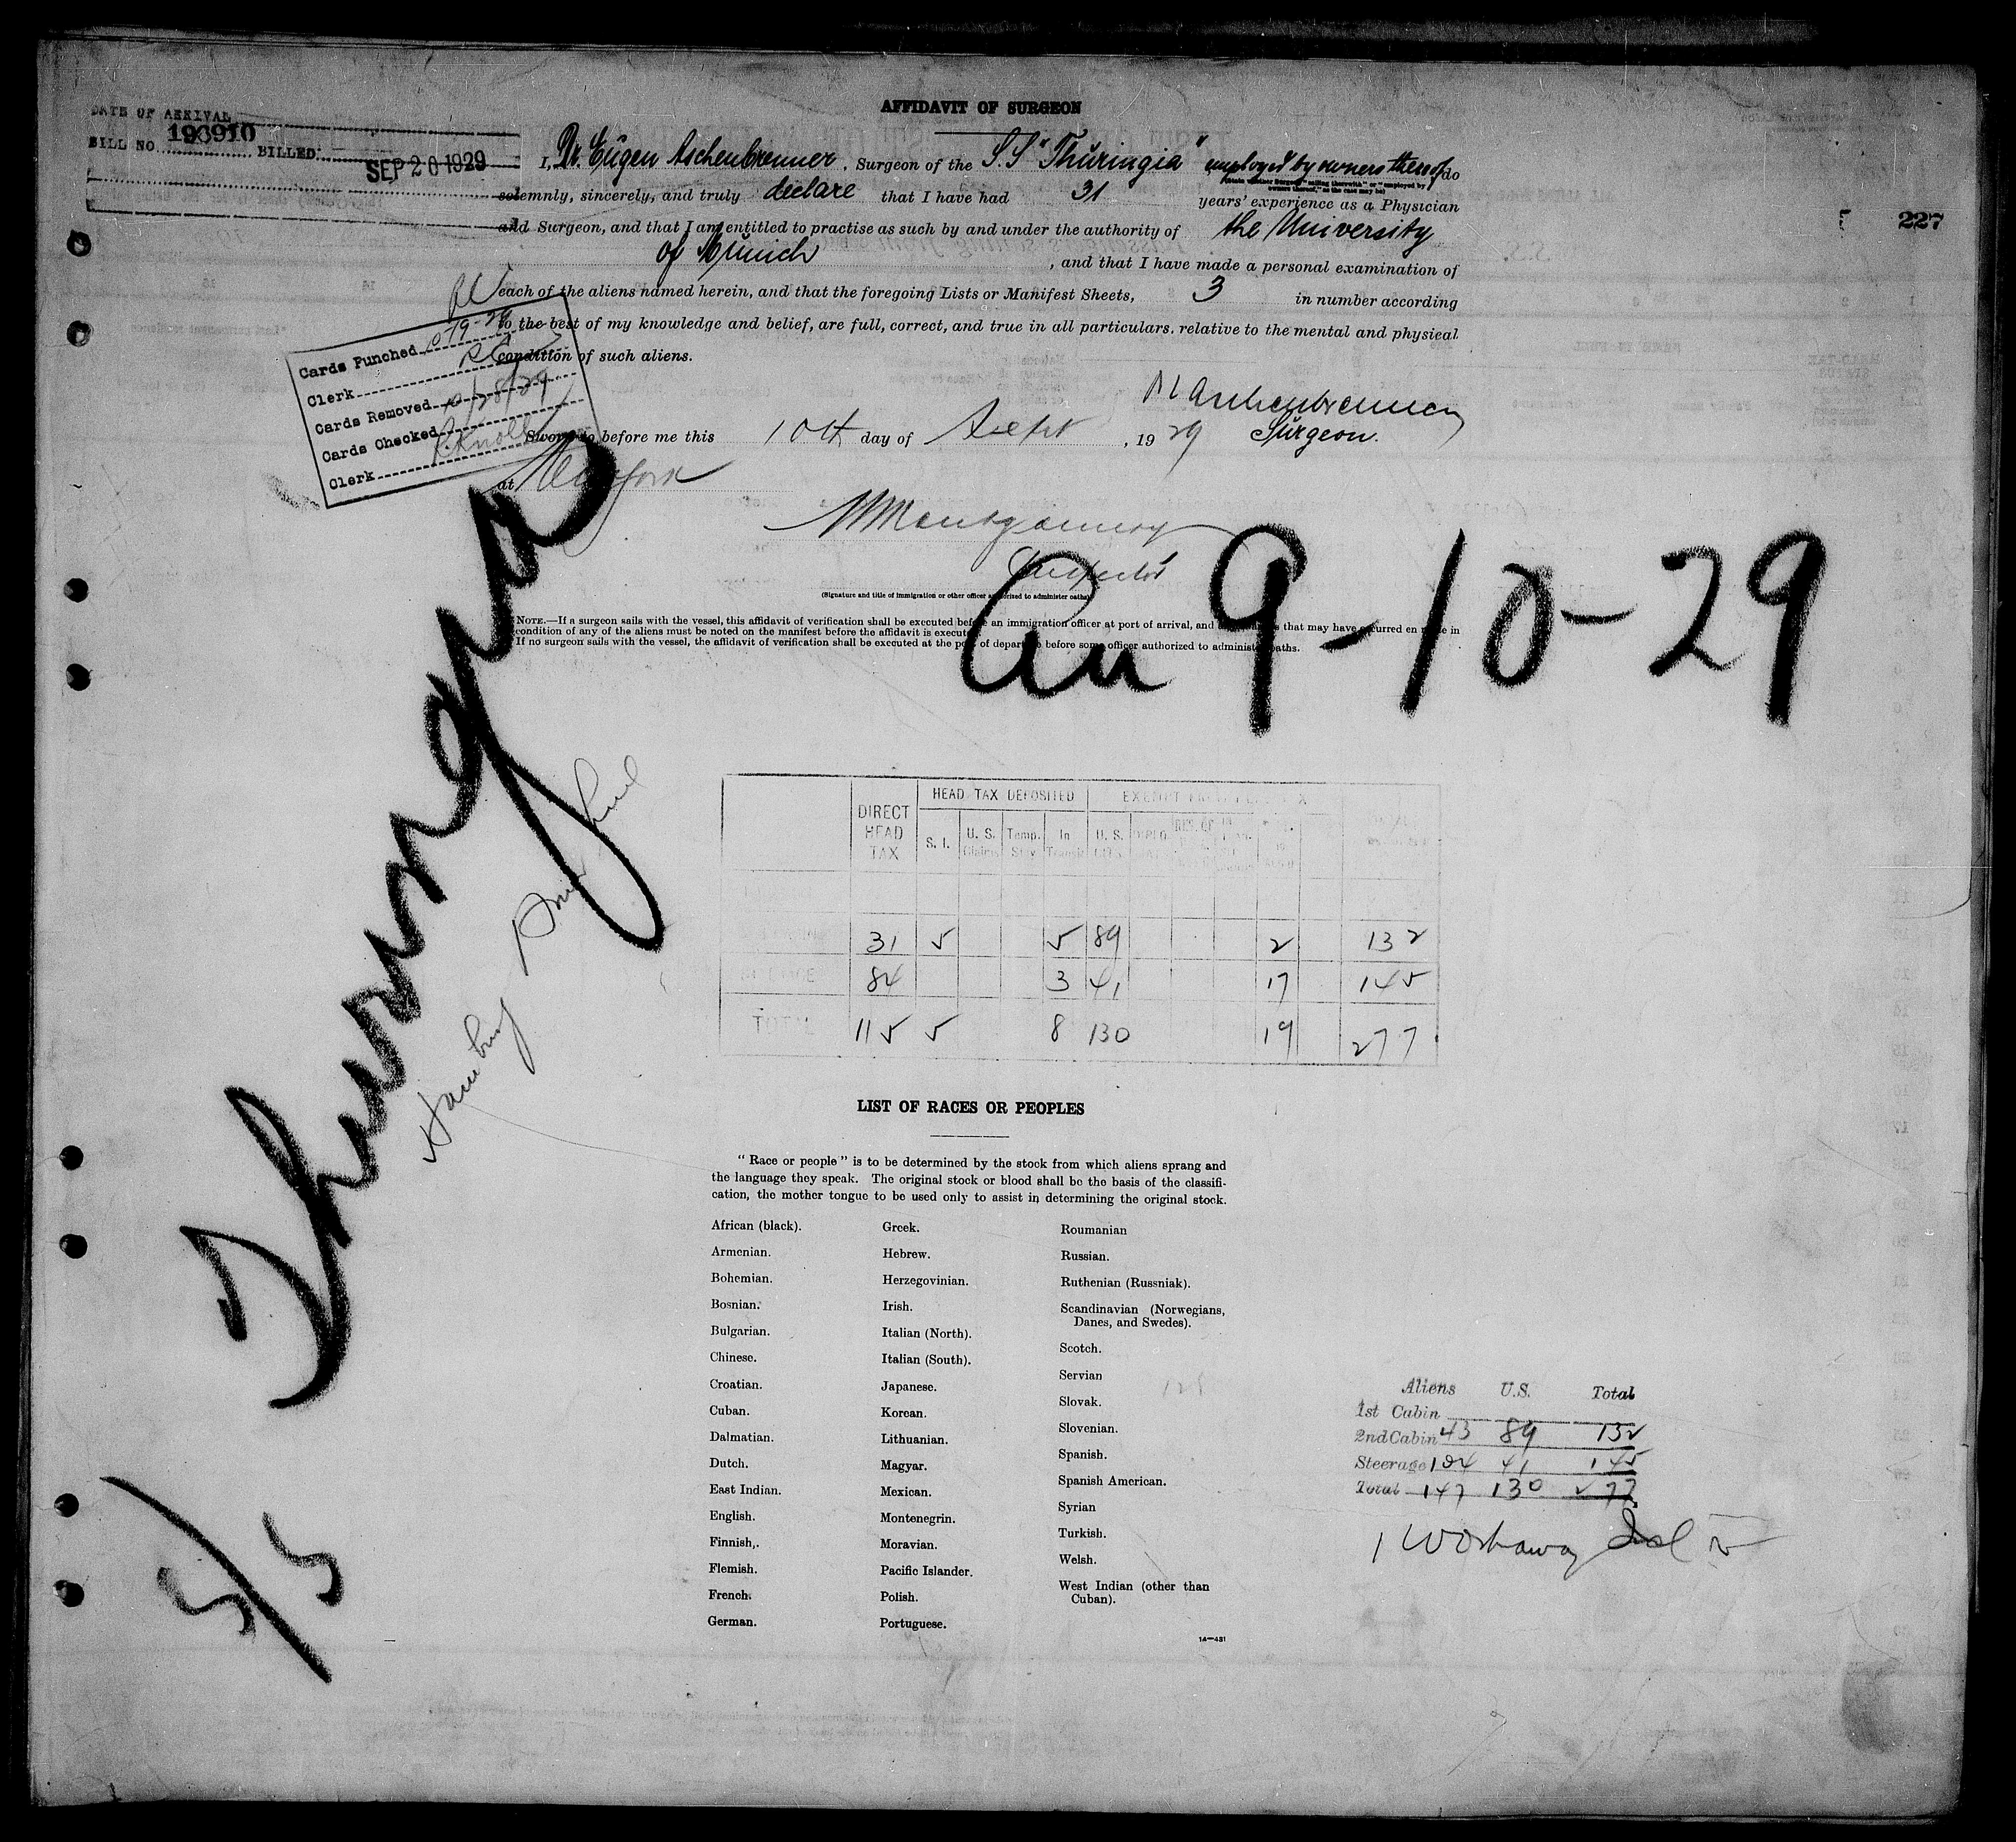 DATE OF ARRIVAL
BILL NO. 193910 BILLED
SEP 20 1929
227
AFFIDAVIT OF SURGEON
I, Dr. Eügen Aschenbrenner, Surgeon of the S.S "Thüringia" employed by owners thereof do
solemnly, sincerely, and truly declare that I have had 31 years' experience as a Physician
and Surgeon, and that I am entitled to practise as such by and under the authority of the University
of Münich, and that I have made a personal examination of
each of the aliens named herein, and that the foregoing Lists or Manifest Sheets, 3 in number according
to the best of my knowledge and belief, are full, correct, and true in all particulars, relative to the mental and physical
condition of such aliens.
Aschenbrenner
Sürgeon.
Sworn to before me this 10th day of Sept, 1929
at New York
Montgomery
Inspector
(Signature and title of immigration or other officer authorized to administer oaths)
NOTE.—If a surgeon sails with the vessel, this affidavit of verification shall be executed before an immigration officer at port of arrival, and that may have occurred en route in
condition of any of the aliens must be noted on the manifest before the affidavit is executed
If no surgeon sails with the vessel, the affidavit of verification shall be executed at the port of departure before some officer authorized to administer oaths.
Cards Punched
Clerk
Cards Removed 10/28/29
Cards Checked
Clerk
Thuringia
9-10-29
Hamburg Amer Line
5/5
DIRECT HEAD TAX
HEAD TAX DEPOSITED
S. I. U. S. Claim Temp. Stay In Transit U. S.
31 5 5 89 2 132
84 3 41 17 145
115 5 8 130 19 277
LIST OF RACES OR PEOPLES
"Race or people" is to be determined by the stock from which aliens sprang and
the language they speak. The original stock or blood shall be the basis of the classifi-
cation, the mother tongue to be used only to assist in determining the original stock.
African (black).
Armenian.
Bohemian.
Bosnian.
Bulgarian.
Chinese.
Croatian.
Cuban.
Dalmatian.
Dutch.
East Indian.
English.
Finnish.
Flemish.
French.
German.
Greek.
Hebrew.
Herzegovinian.
Irish.
Italian (North).
Italian (South).
Japanese.
Korean.
Lithuanian.
Magyar.
Mexican.
Montenegrin.
Moravian.
Pacific Islander.
Polish.
Portuguese.
Roumanian
Russian.
Ruthenian (Russniak).
Scandinavian (Norwegians,
Danes, and Swedes).
Scotch.
Servian
Slovak.
Slovenian.
Spanish.
Spanish American.
Syrian
Turkish.
Welsh.
West Indian (other than
Cuban).
14—431
Aliens U.S. Total
1st Cabin
2nd Cabin 43 89 132
Steerage 104 41 145
Total 147 130 277
1 Workaway